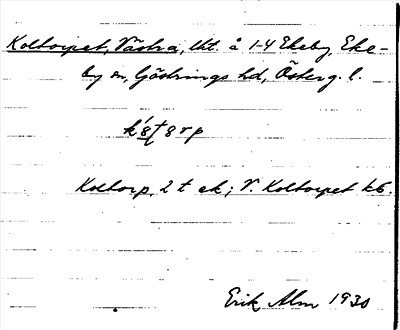 Koltorpet, Västra, lht. å 1-4 Ekeby, Eke-
by sn, Göstrings hd, Österg. l.
Koltorp 2 t ek; V. Koltorpet kb.
Erik Alm 1930